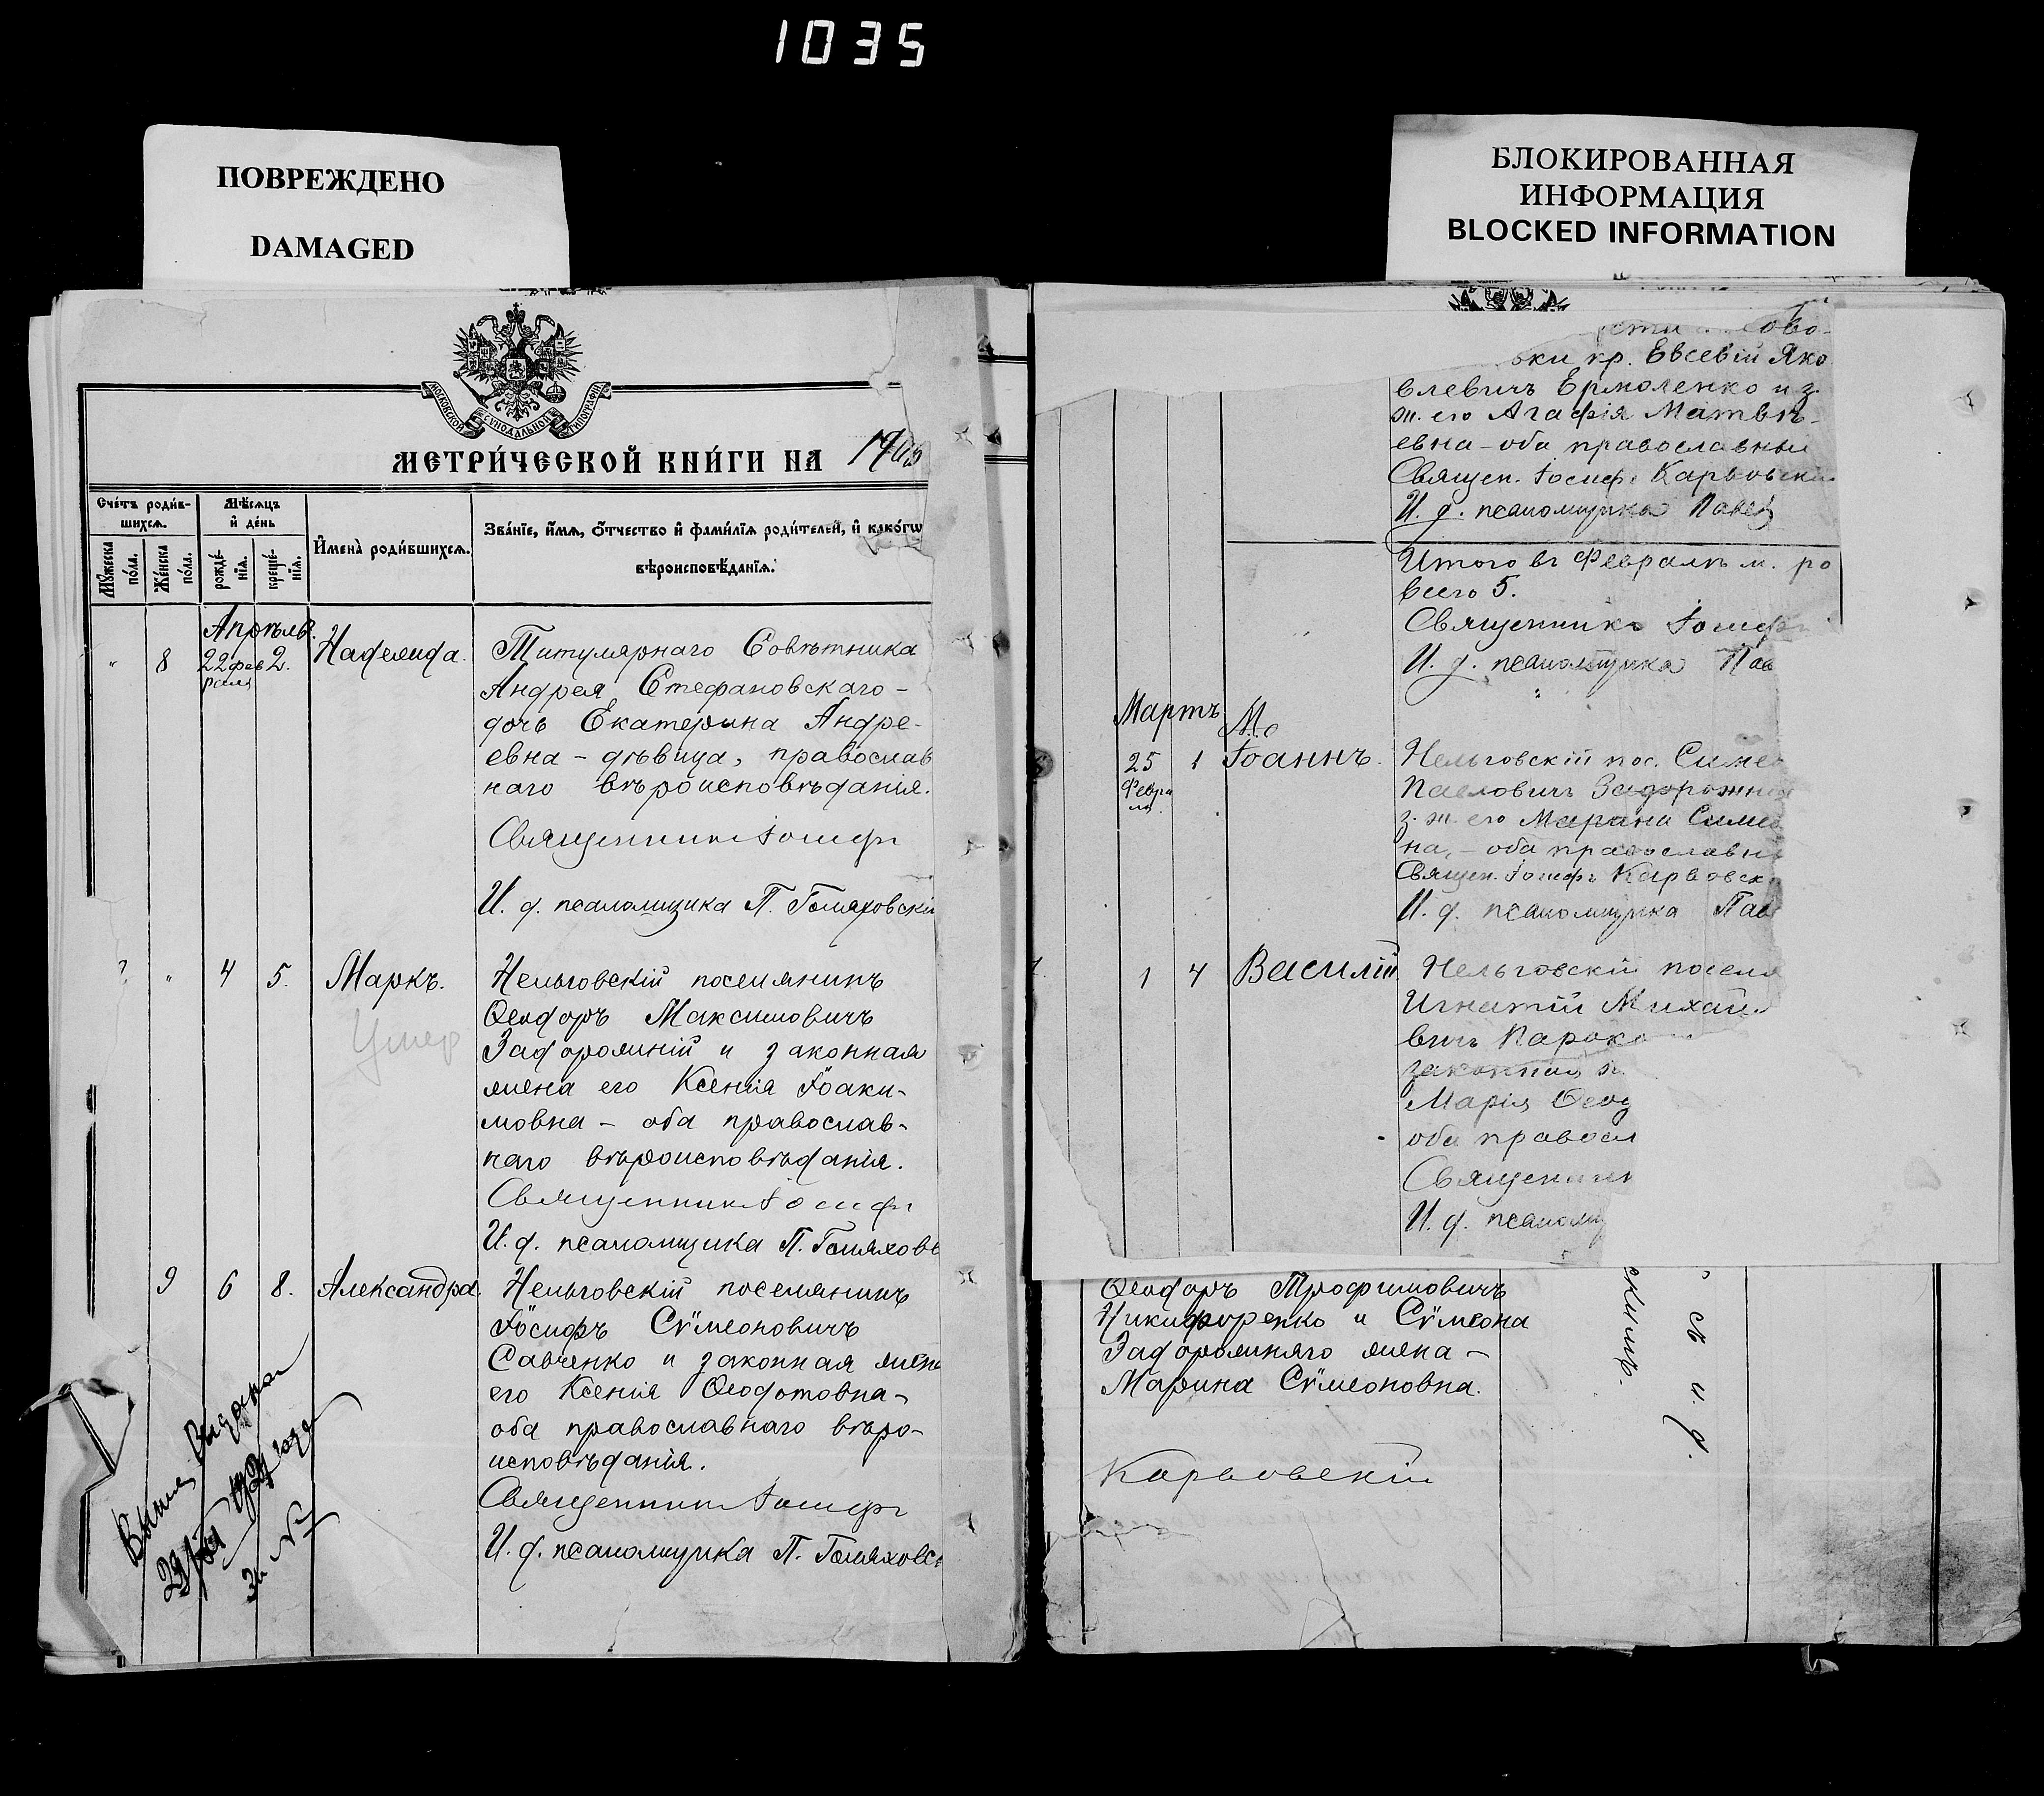 1035
ПОВРЕЖДЕНО
DAMAGED
БЛОКИРОВАННАЯ
ИНФОРМАЦИЯ
BLOCKED INFORMATION
МОСКОВСКОЙ СѴНОДАЛЬНОЙ ТИПОГРАФІИ
МЕТРИ́ЧЕСКОЙ КНИ́ГИ НА
Сче́тъ роди́в-
шихсѧ.
Мѣ́сѧцъ
и҆ де́нь
Мꙋ́жеска
по́ла.
Же́нска
по́ла.
рожде́-
нїѧ.
креще́-
нїѧ.
И҆мена̀ роди́вшихсѧ.
Зва́нїе, и҆́мѧ, ѻ҆́тчество и҆ фами́лїѧ роди́телей, и҆ како́гѡ
вѣроисповѣ́данїѧ.
Апрѣль.
" 8 22 фев 2. Надежда.
раля
Титулярнаго Совѣтника
Андрея Стефановскаго -
дочь Екатерина Андре-
евна - дѣвица, православ
наго вѣроисповѣданія.
Священникъ Іосифъ
И. д. псаломщика П. Гомяховскі
" 4 5. Маркъ.
Умер
Нельговскій поселянинъ
Ѳеодоръ Максимовичъ
Задорожній и законная
жена его Ксенія Іоаки-
мовна - оба православ-
наго вѣроисповѣданія.
Священникъ Іосифъ
И. д. псаломщика П. Гомяхов
9 6 8. Александра.
Нельговскій поселянинъ
Іосифъ Сѵмеоновичъ
Савченко и законная жен
его Ксенія Ѳеодотовна -
оба православнаго вѣро-
исповѣданія.
Священникъ Іосифъ
И. д. псаломщика П. Гомяховс
за №
ьки кр. Евсевій Яко
влевичъ Ермоленко и з.
ж. его Агафія Матвѣ-
евна - оба православны
Священ. Іосифъ Карвовскі
И. д. псаломщика Павел
Итого въ Февралѣ м. ро
всего 5.
Священникъ Іосифъ
И. д. псаломщика Пав
Мартъ
М.
25 1 Іоаннъ.
Февра
ля
Нельговскій пос. Симе
Павловичъ Задорожн
з. ж. его Марина Симе
на, - оба православн
Священ. Іосифъ Карвовск
И. д. псаломщика Пав
1 4 Василій
Нельговскій поселя
Игнатій Михайл
вичъ Парохо
законная ж
Марія Ѳеод
оба правосл
Священник
И. д. псаломщ
Ѳеодоръ Трофимовичъ
Никифоренко и Сѵмеона
Задорожняго жена -
Марина Сѵмеоновна.
Карвовскій